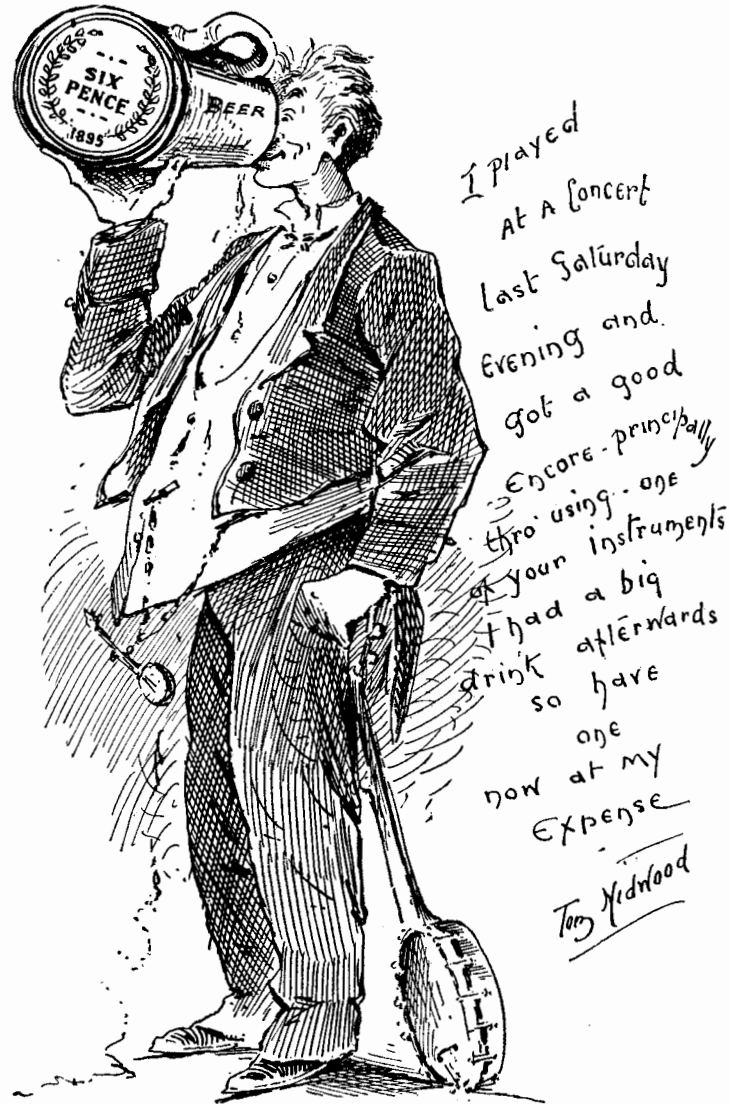 SIX
PENCE
1895
BEER
I played
At A Concert
last Saturday
Evening and
got a good
Encore - principally
thro' using - one
of your instruments
I had a big
drink afterwards
so have
one
now at my
Expense
Tom Midwood